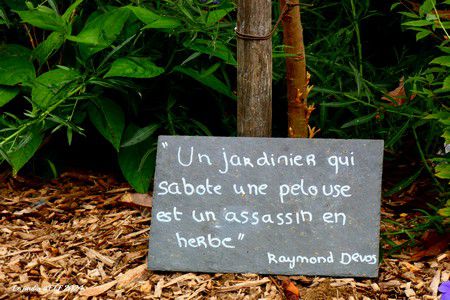 "Un jardinier qui
sabote une pelouse
est un assassin en
herbe"
Raymond Devos